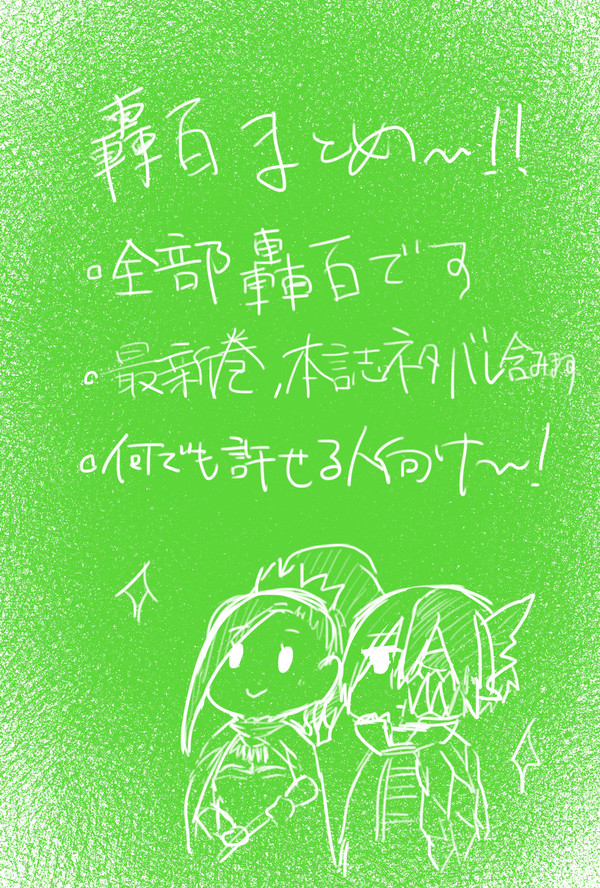 轟百まとめ〜!!
。全部轟百です
。最新巻,本誌ネタバレ含みます
。何でも許せる人向け〜!